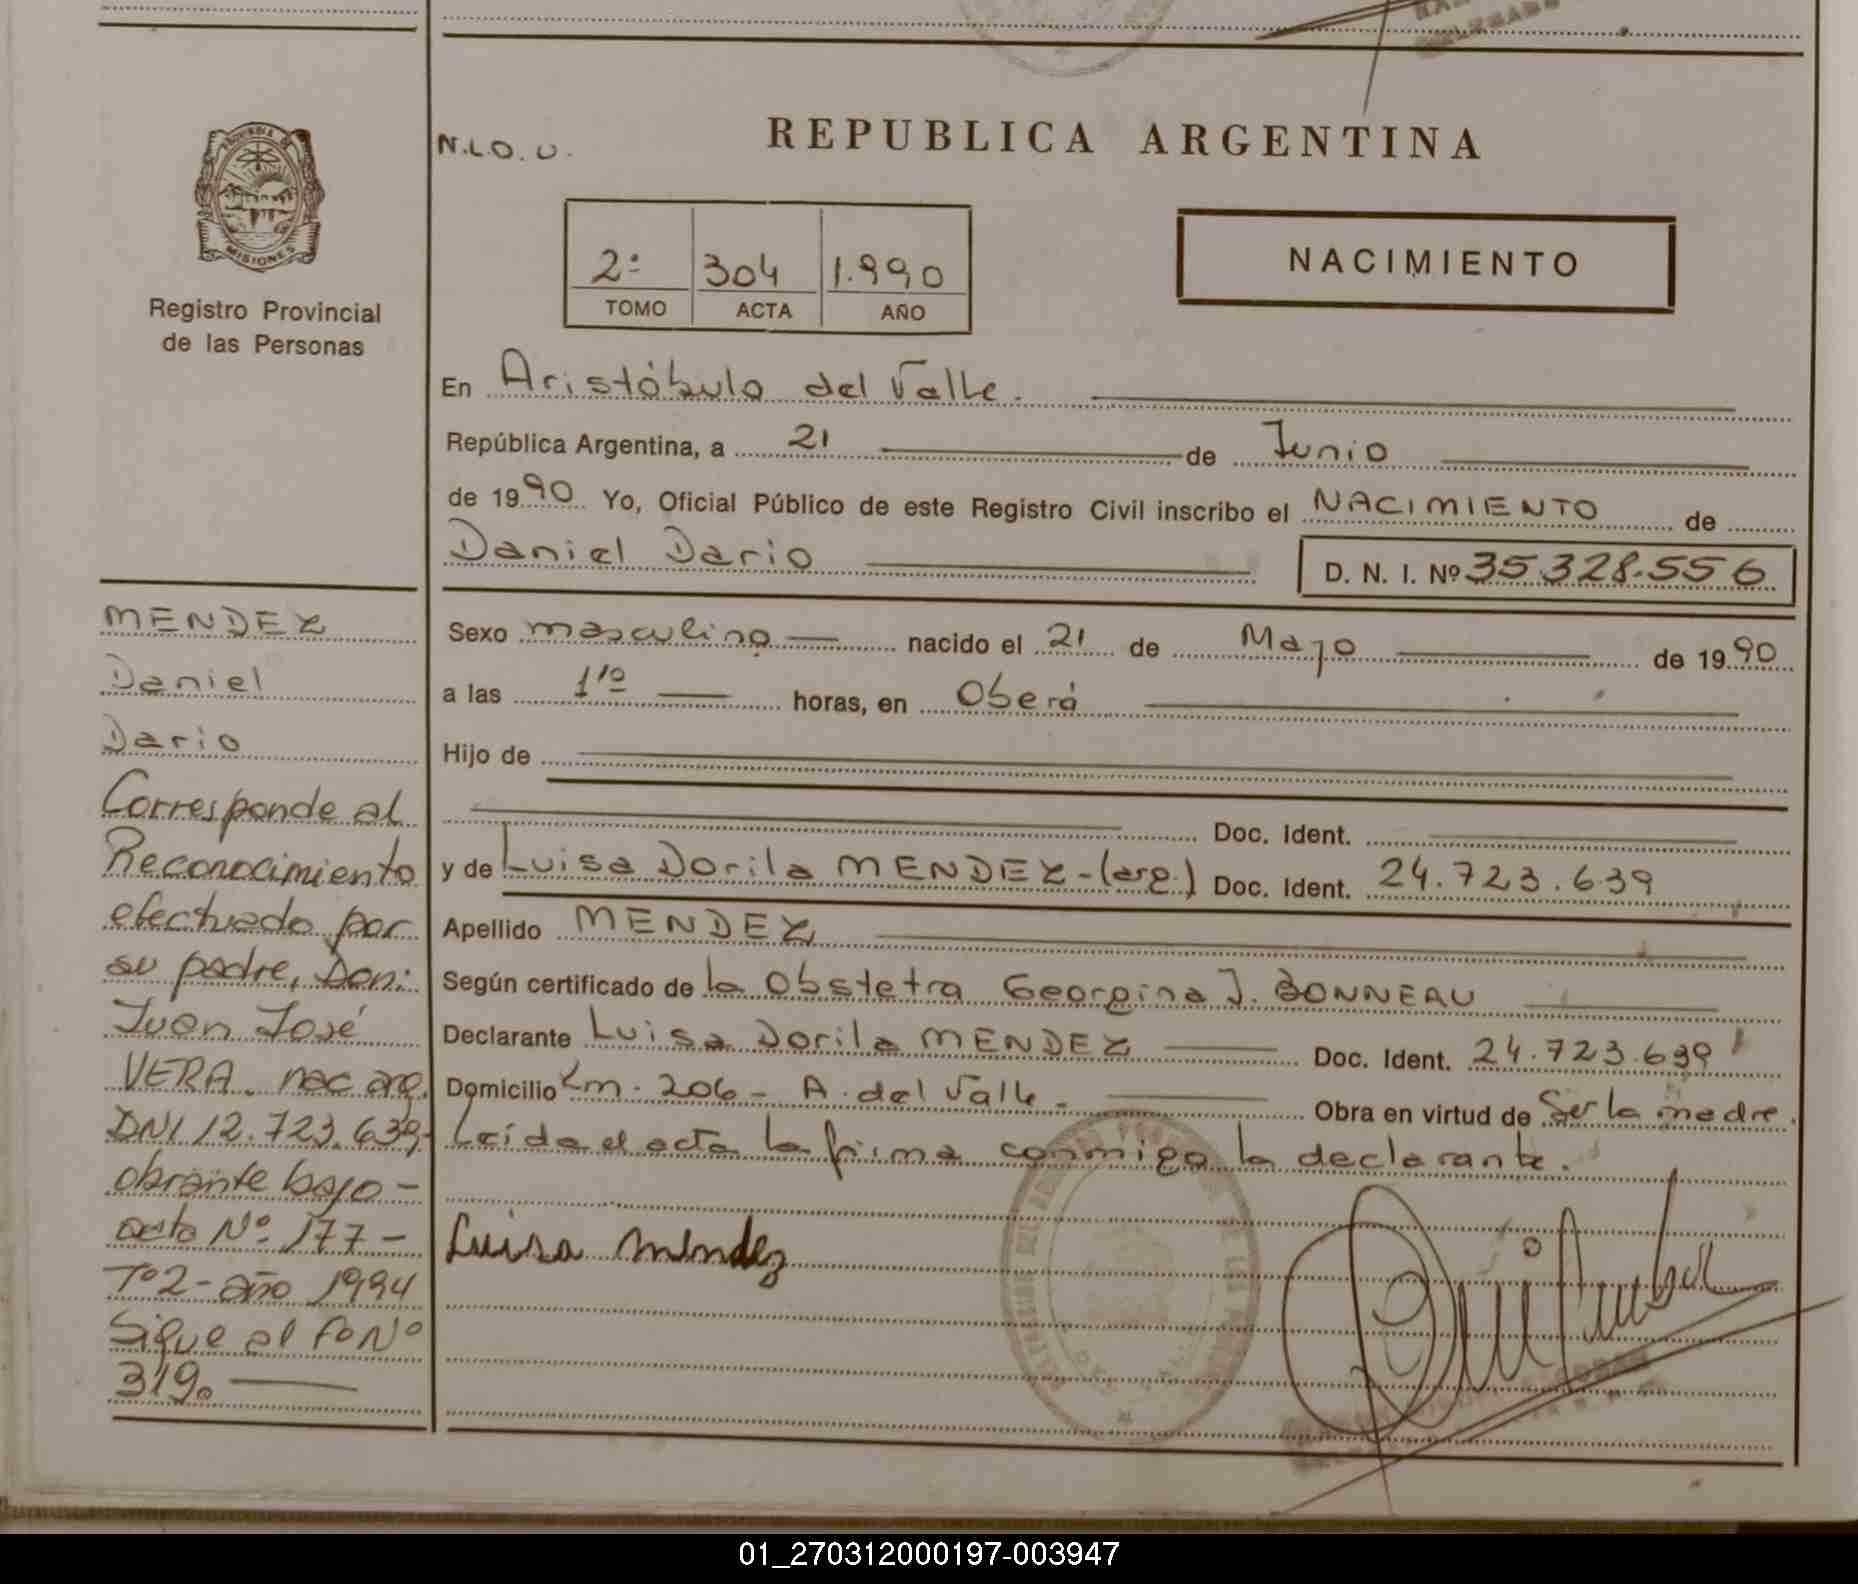 N.L.O.U.
REPUBLICA ARGENTINA
MISIONES
Registro Provincial
de las Personas
2º 304 1.990
TOMO ACTA AÑO
NACIMIENTO
En Aristóbulo del Valle.
República Argentina, a 21 de Junio
de 1990 Yo, Oficial Público de este Registro Civil inscribo el NACIMIENTO de
Daniel Dario D. N. I. Nº 35.328.556
Sexo masculino nacido el 21 de Mayo de 1990
a las 1'º horas, en Oberá
Hijo de
Doc. Ident.
y de Luisa Dorila MENDEZ - (arg.) Doc. Ident. 24.723.639
Apellido MENDEZ
Según certificado de la Obstetra Georgina J. BONNEAU
Declarante Luisa Dorila MENDEZ Doc. Ident. 24.723.639
Domicilio Km. 206 - A. del Valle - Obra en virtud de Ser la madre.
Leída el acta la firma conmigo la declarante.
Luisa Mendez
MENDEZ
Daniel
Dario
Corresponde al
Reconocimiento
efectuado por
su padre, Don:
Juan José
VERA. nac arg.
DNI 12.723.639,-
obrante bajo -
acta Nº 177 -
Tº 2 - año 1994
Sigue al Fº Nº
319.
01_270312000197-003947